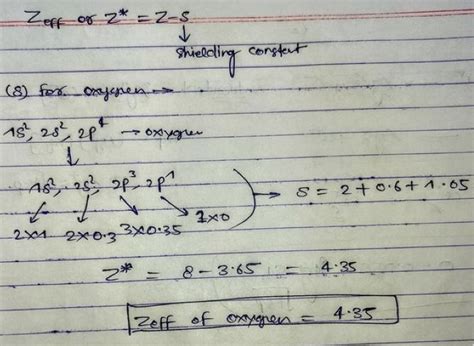 Zeff or Z* = Z-S
↓
Shielding constent
(S) for oxygen →
1s², 2s², 2p⁴ → oxygen
↓
1s², 2s², 2p³, 2p¹
2×1 2×0.3 3×0.35 1×0 → S = 2+0.6+1.05
Z* = 8-3.65 = 4.35
Zeff of oxygen = 4.35